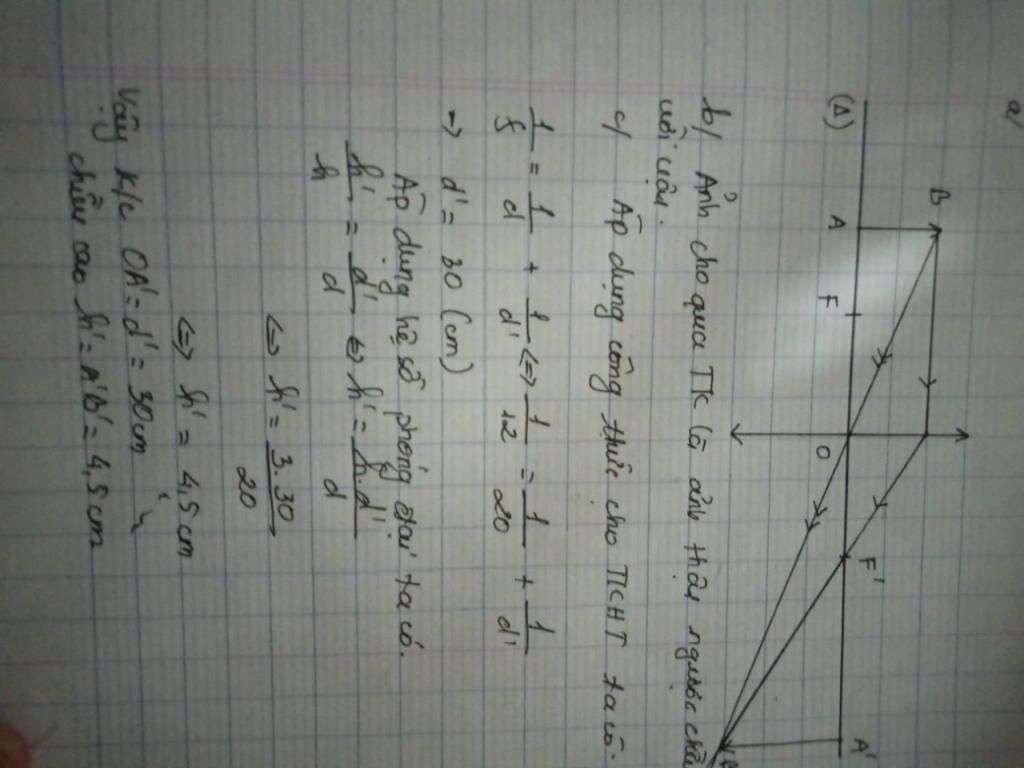 a/
B
(Δ) A F O F' A'
b/ Ảnh cho qua TK là ảnh thật, ngược chiều
với vật.
c/ Áp dụng công thức cho TKHT ta có.
1/f = 1/d + 1/d' <=> 1/12 = 1/20 + 1/d'
=> d' = 30 (cm)
Áp dụng hệ số phóng đại ta có.
h'/h = d'/d <=> h' = h.d'/d
<=> h' = 3.30/20
<=> h' = 4,5 cm
Vậy K/c OA' = d' = 30cm
chiều cao h' = A'B' = 4,5 cm